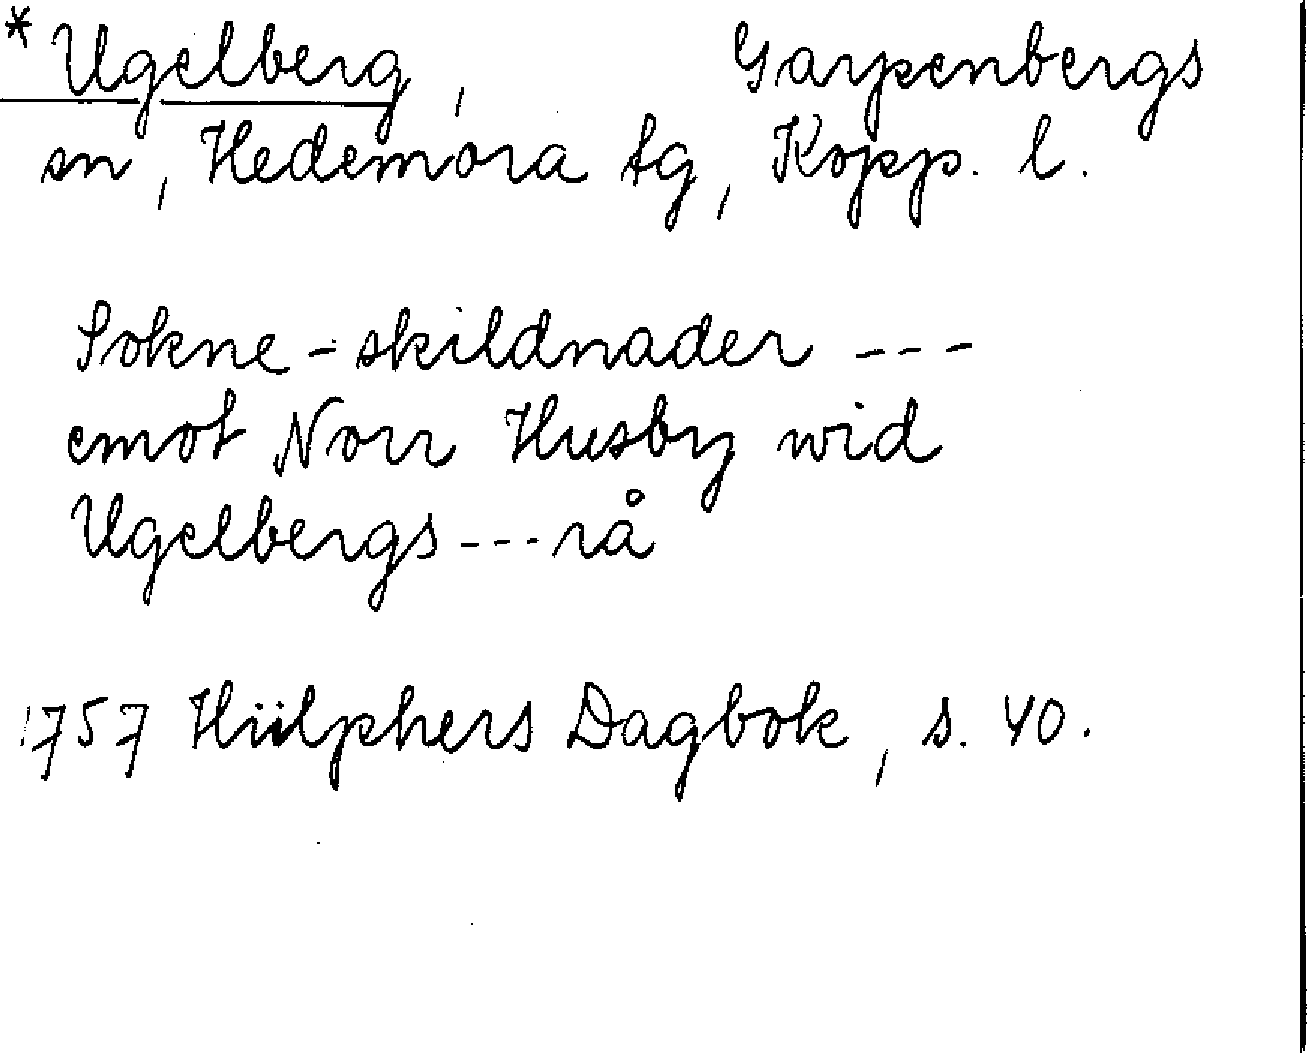 *Ugelberg, Garpenbergs
sn, Hedemora tg, Kopp. l.
Sokne-skildnader ---
emot Norr Husby wid
Ugelbergs---rå
1757 Hülphers Dagbok, s. 40.